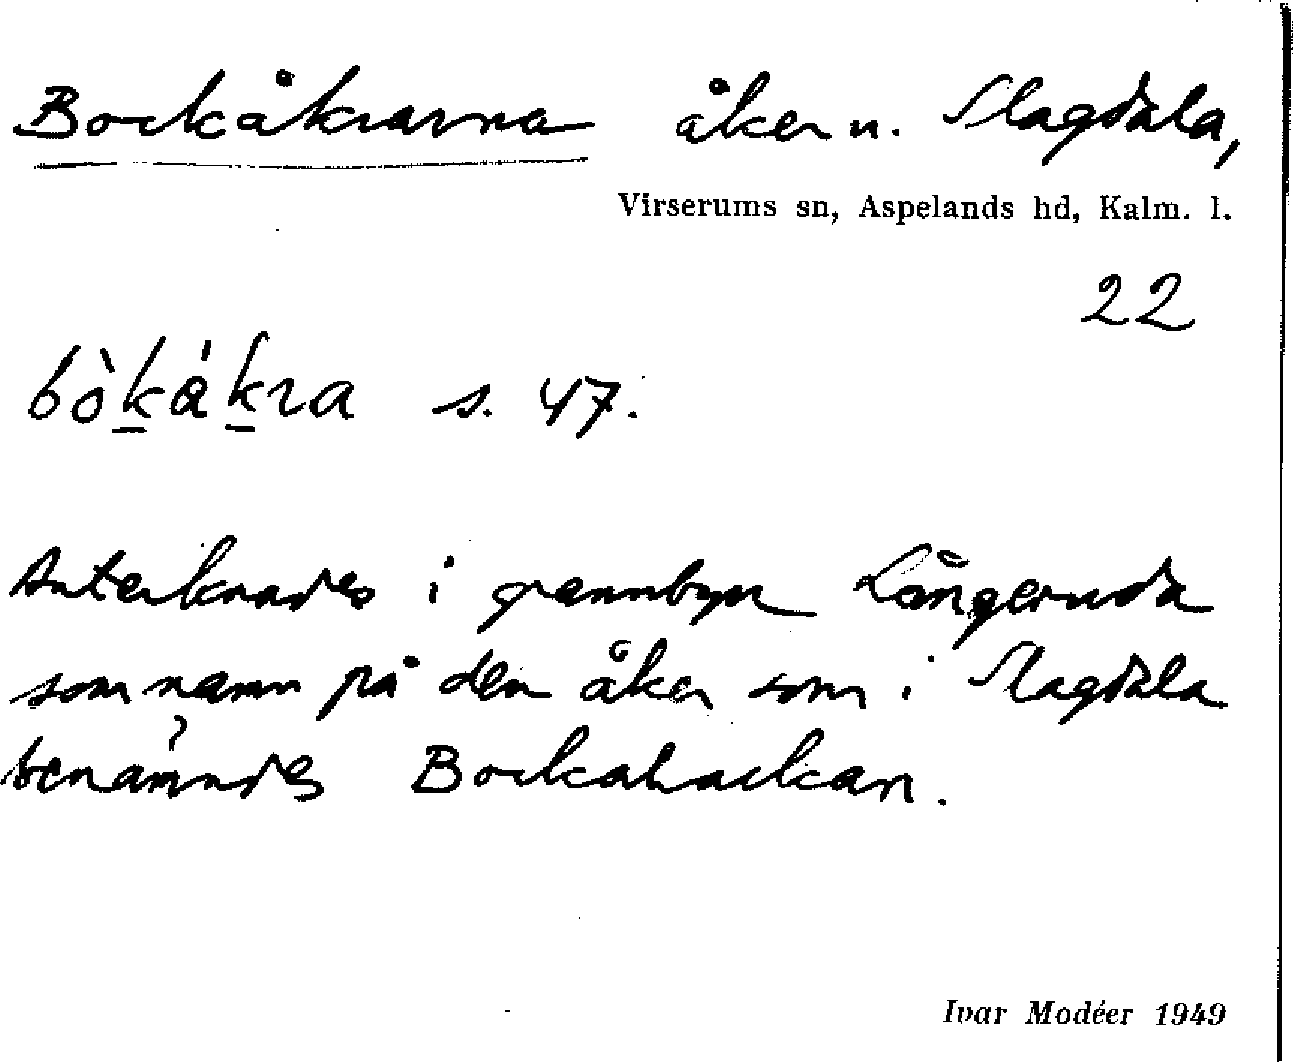 Bockåkrarna åker n. Slagdala,
Virserums sn, Aspelands hd, Kalm. l.
22
bòk̲ák̲ra s. 47.
Antecknades i grannbyn Långeruda
som namn på den åker som i Slagdala
benämndes Bockabackan.
Ivar Modéer 1949